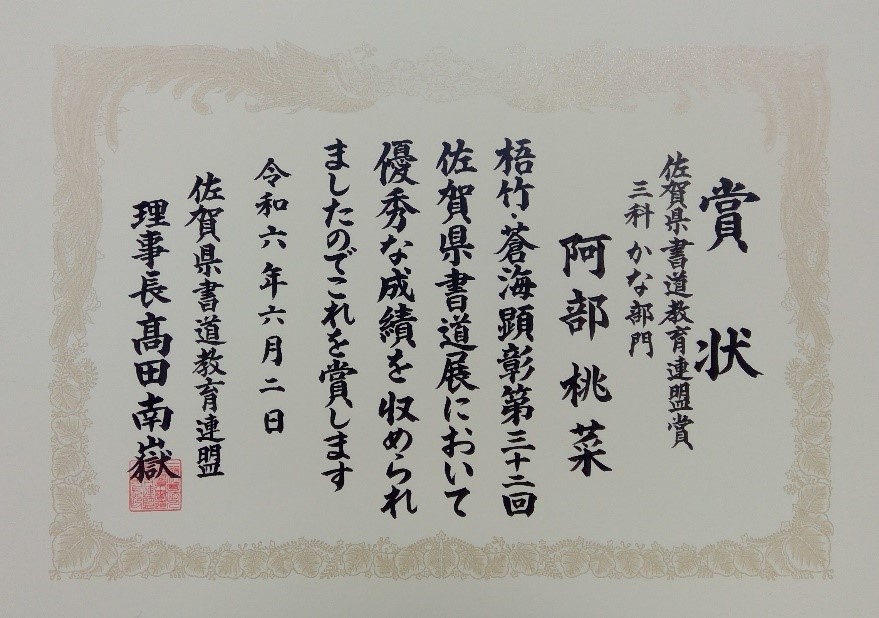 賞状
佐賀県書道教育連盟賞
三科 かな部門
阿部桃菜
梧竹・蒼海顕彰第三十二回
佐賀県書道展において
優秀な成績を収められ
ましたのでこれを賞します
令和六年六月二日
佐賀県書道教育連盟
理事長髙田南嶽